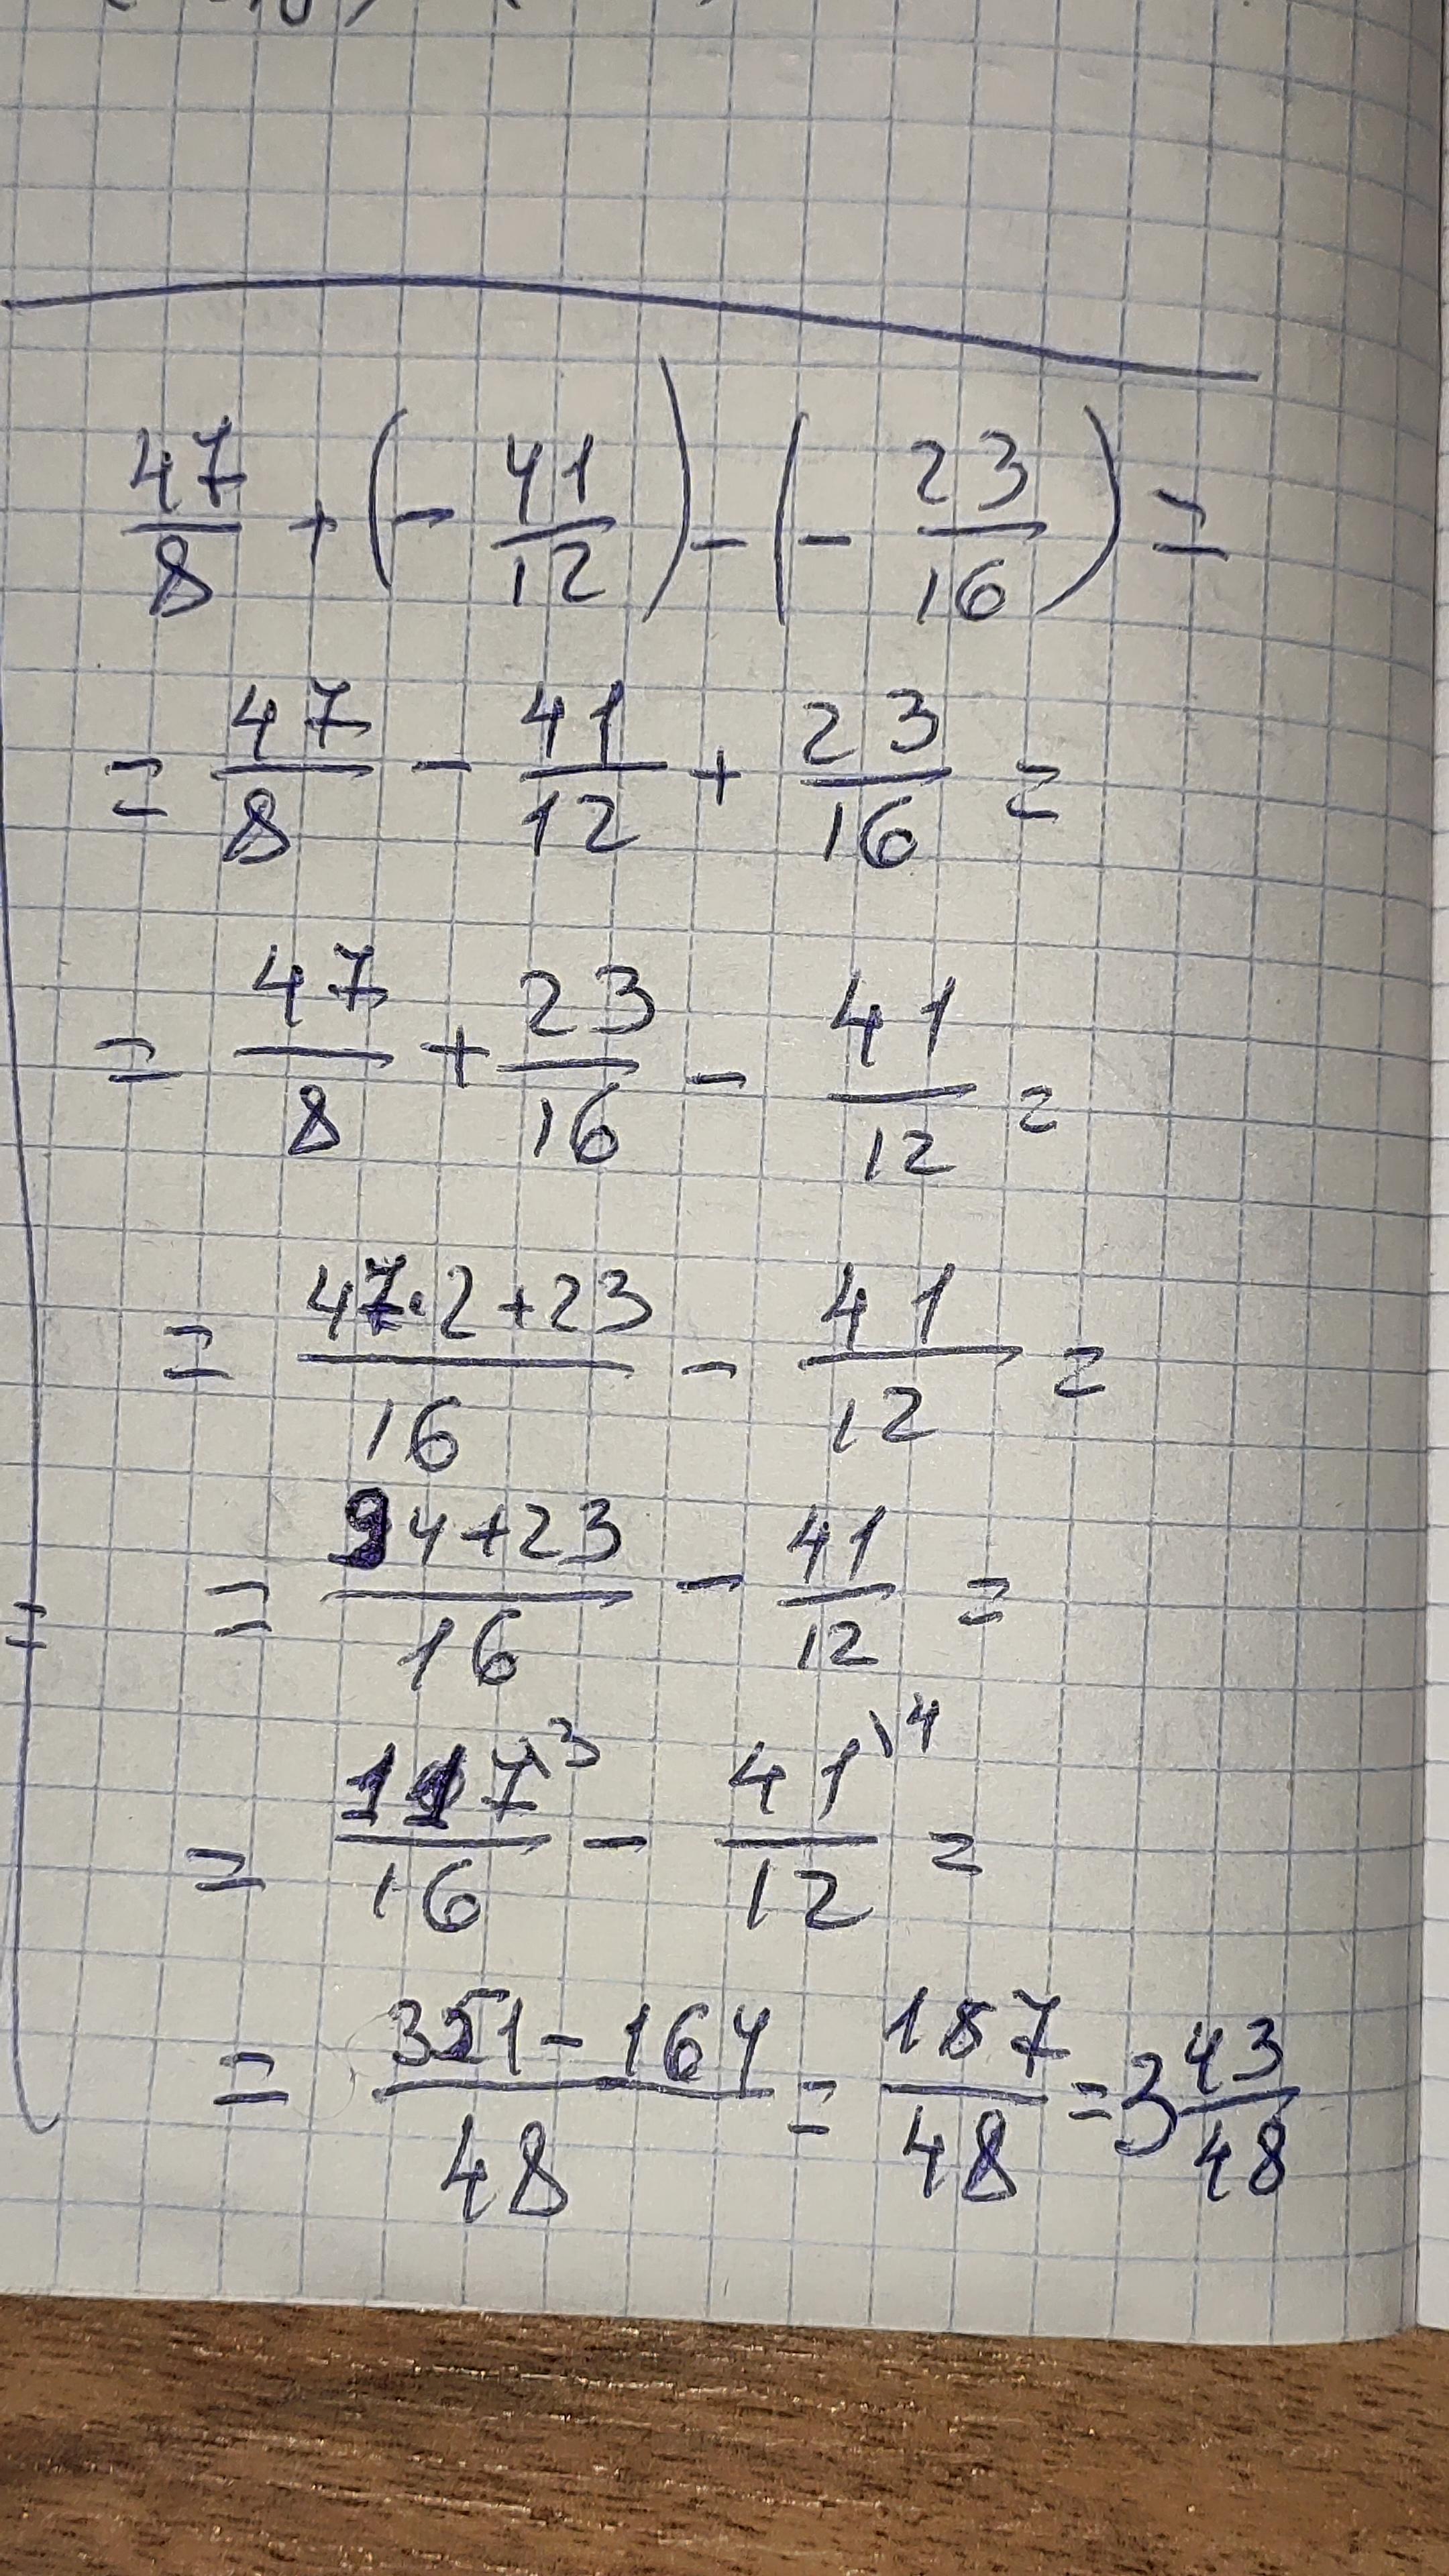 47/8 + (- 41/12) - (- 23/16) =
= 47/8 - 41/12 + 23/16 =
= 47/8 + 23/16 - 41/12 =
= 47·2+23/16 - 41/12 =
= 94+23/16 - 41/12 =
= 117\3/16 - 41\4/12 =
= 351-164/48 = 187/48 = 3 43/48
=